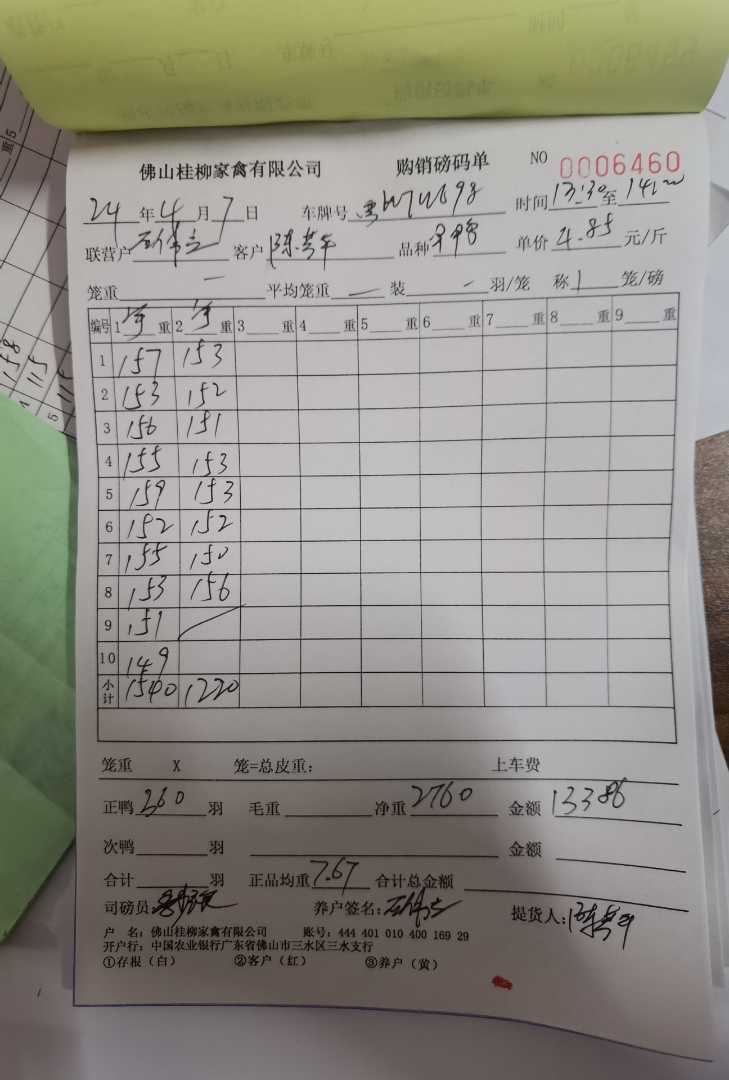 佛山桂柳家禽有限公司 购销磅码单 NO 0006460
24年4月7日 车牌号 时间13:30至
联营户 客户 品种 单价4.85元/斤
笼重— 平均笼重— 装—羽/笼 称1笼/磅
编号 1 重 2 重 3 重 4 重 5 重 6 重 7 重 8 重 9 重
1 157 153
2 153 152
3 156 151
4 155 153
5 159 153
6 152 152
7 155 150
8 153 156
9 151
10 149
小计 1540 1220
笼重 X 笼=总皮重： 上车费
正鸭360羽 毛重 净重2760 金额13386
次鸭 羽 金额
合计 羽 正品均重7.67 合计总金额
司磅员: 养户签名: 提货人:
户 名：佛山桂柳家禽有限公司 账号：444 401 010 400 169 29
开户行：中国农业银行广东省佛山市三水区三水支行
①存根（白） ②客户（红） ③养户（黄）
158
115
115
重5